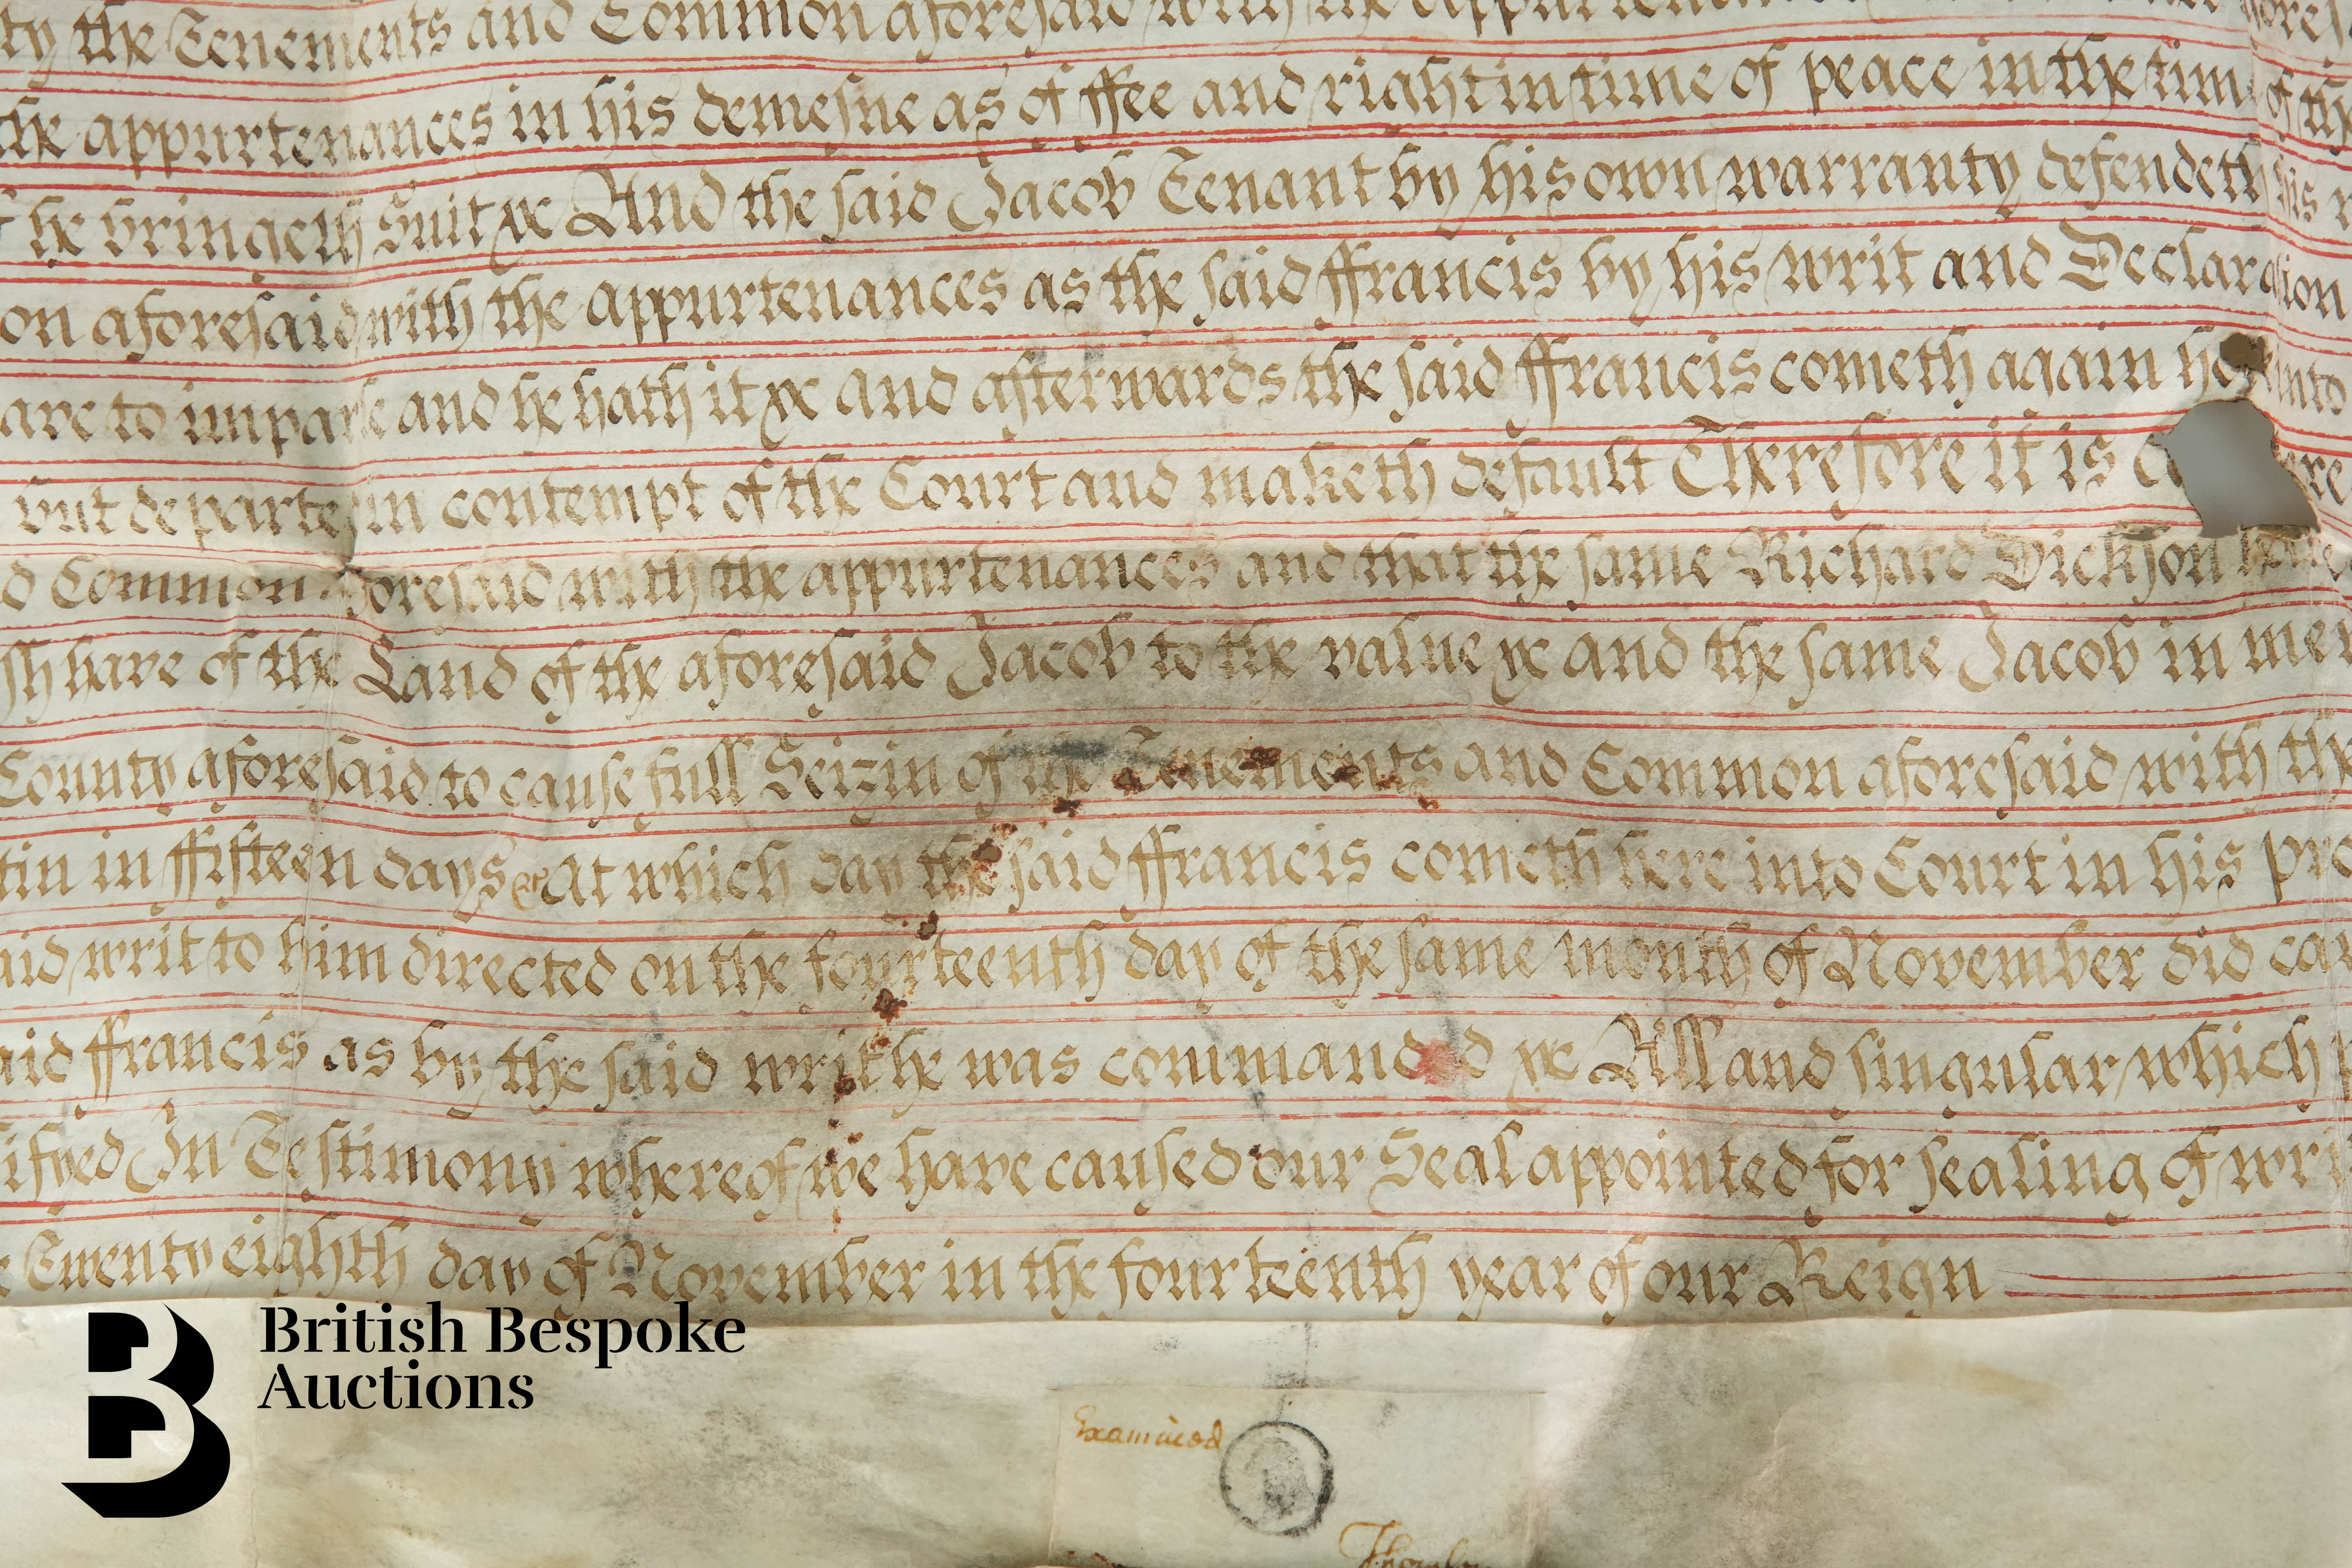 ty the Tenements and Common aforesaid with the appurtenances
the appurtenances in his demesne as of ffee and right in time of peace in the tim of th
he bringeth Suit &c And the said Jacob Tenant by his own warranty defendeth his r
on aforesaid with the appurtenances as the said ffrancis by his writ and Declaration
are to imparle and he hath it &c And afterwards the said ffrancis cometh again into
but departe in contempt of the Court and maketh default Therefore it is
d Common aforesaid with the appurtenances and that the same Richard Dickson have
sh have of the Land of the aforesaid Jacob to the value &c and the same Jacob in mer
County aforesaid to cause full Seizin of the Tenements and Common aforesaid with the
tin in ffifteen days &c At which day the said ffrancis cometh here into Court in his pro
aid writ to him directed on the fourteenth day of the same month of November did cau
aid ffrancis as by the said writ he was commanded &c All and singular which
ifyed In Testimony whereof we have caused our Seal appointed for sealing of wri
Twenty eighth day of November in the fourteenth year of our Reign
British Bespoke
Auctions
Examined